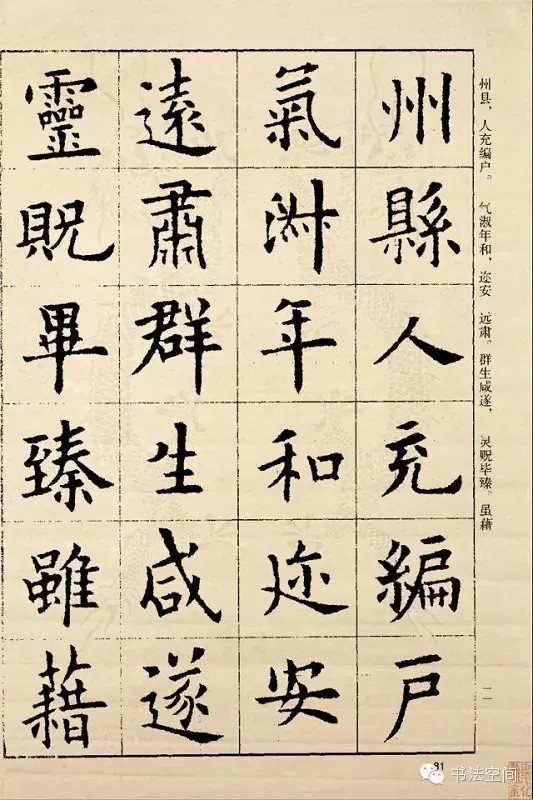 州县，人充编户。 气淑年和，迩安 远肃。群生咸遂， 灵贶毕臻。虽藉
州縣人充編戶
氣淑年和迩安
遠肅群生咸遂
靈貺畢臻雖藉
二一
31
书法空间